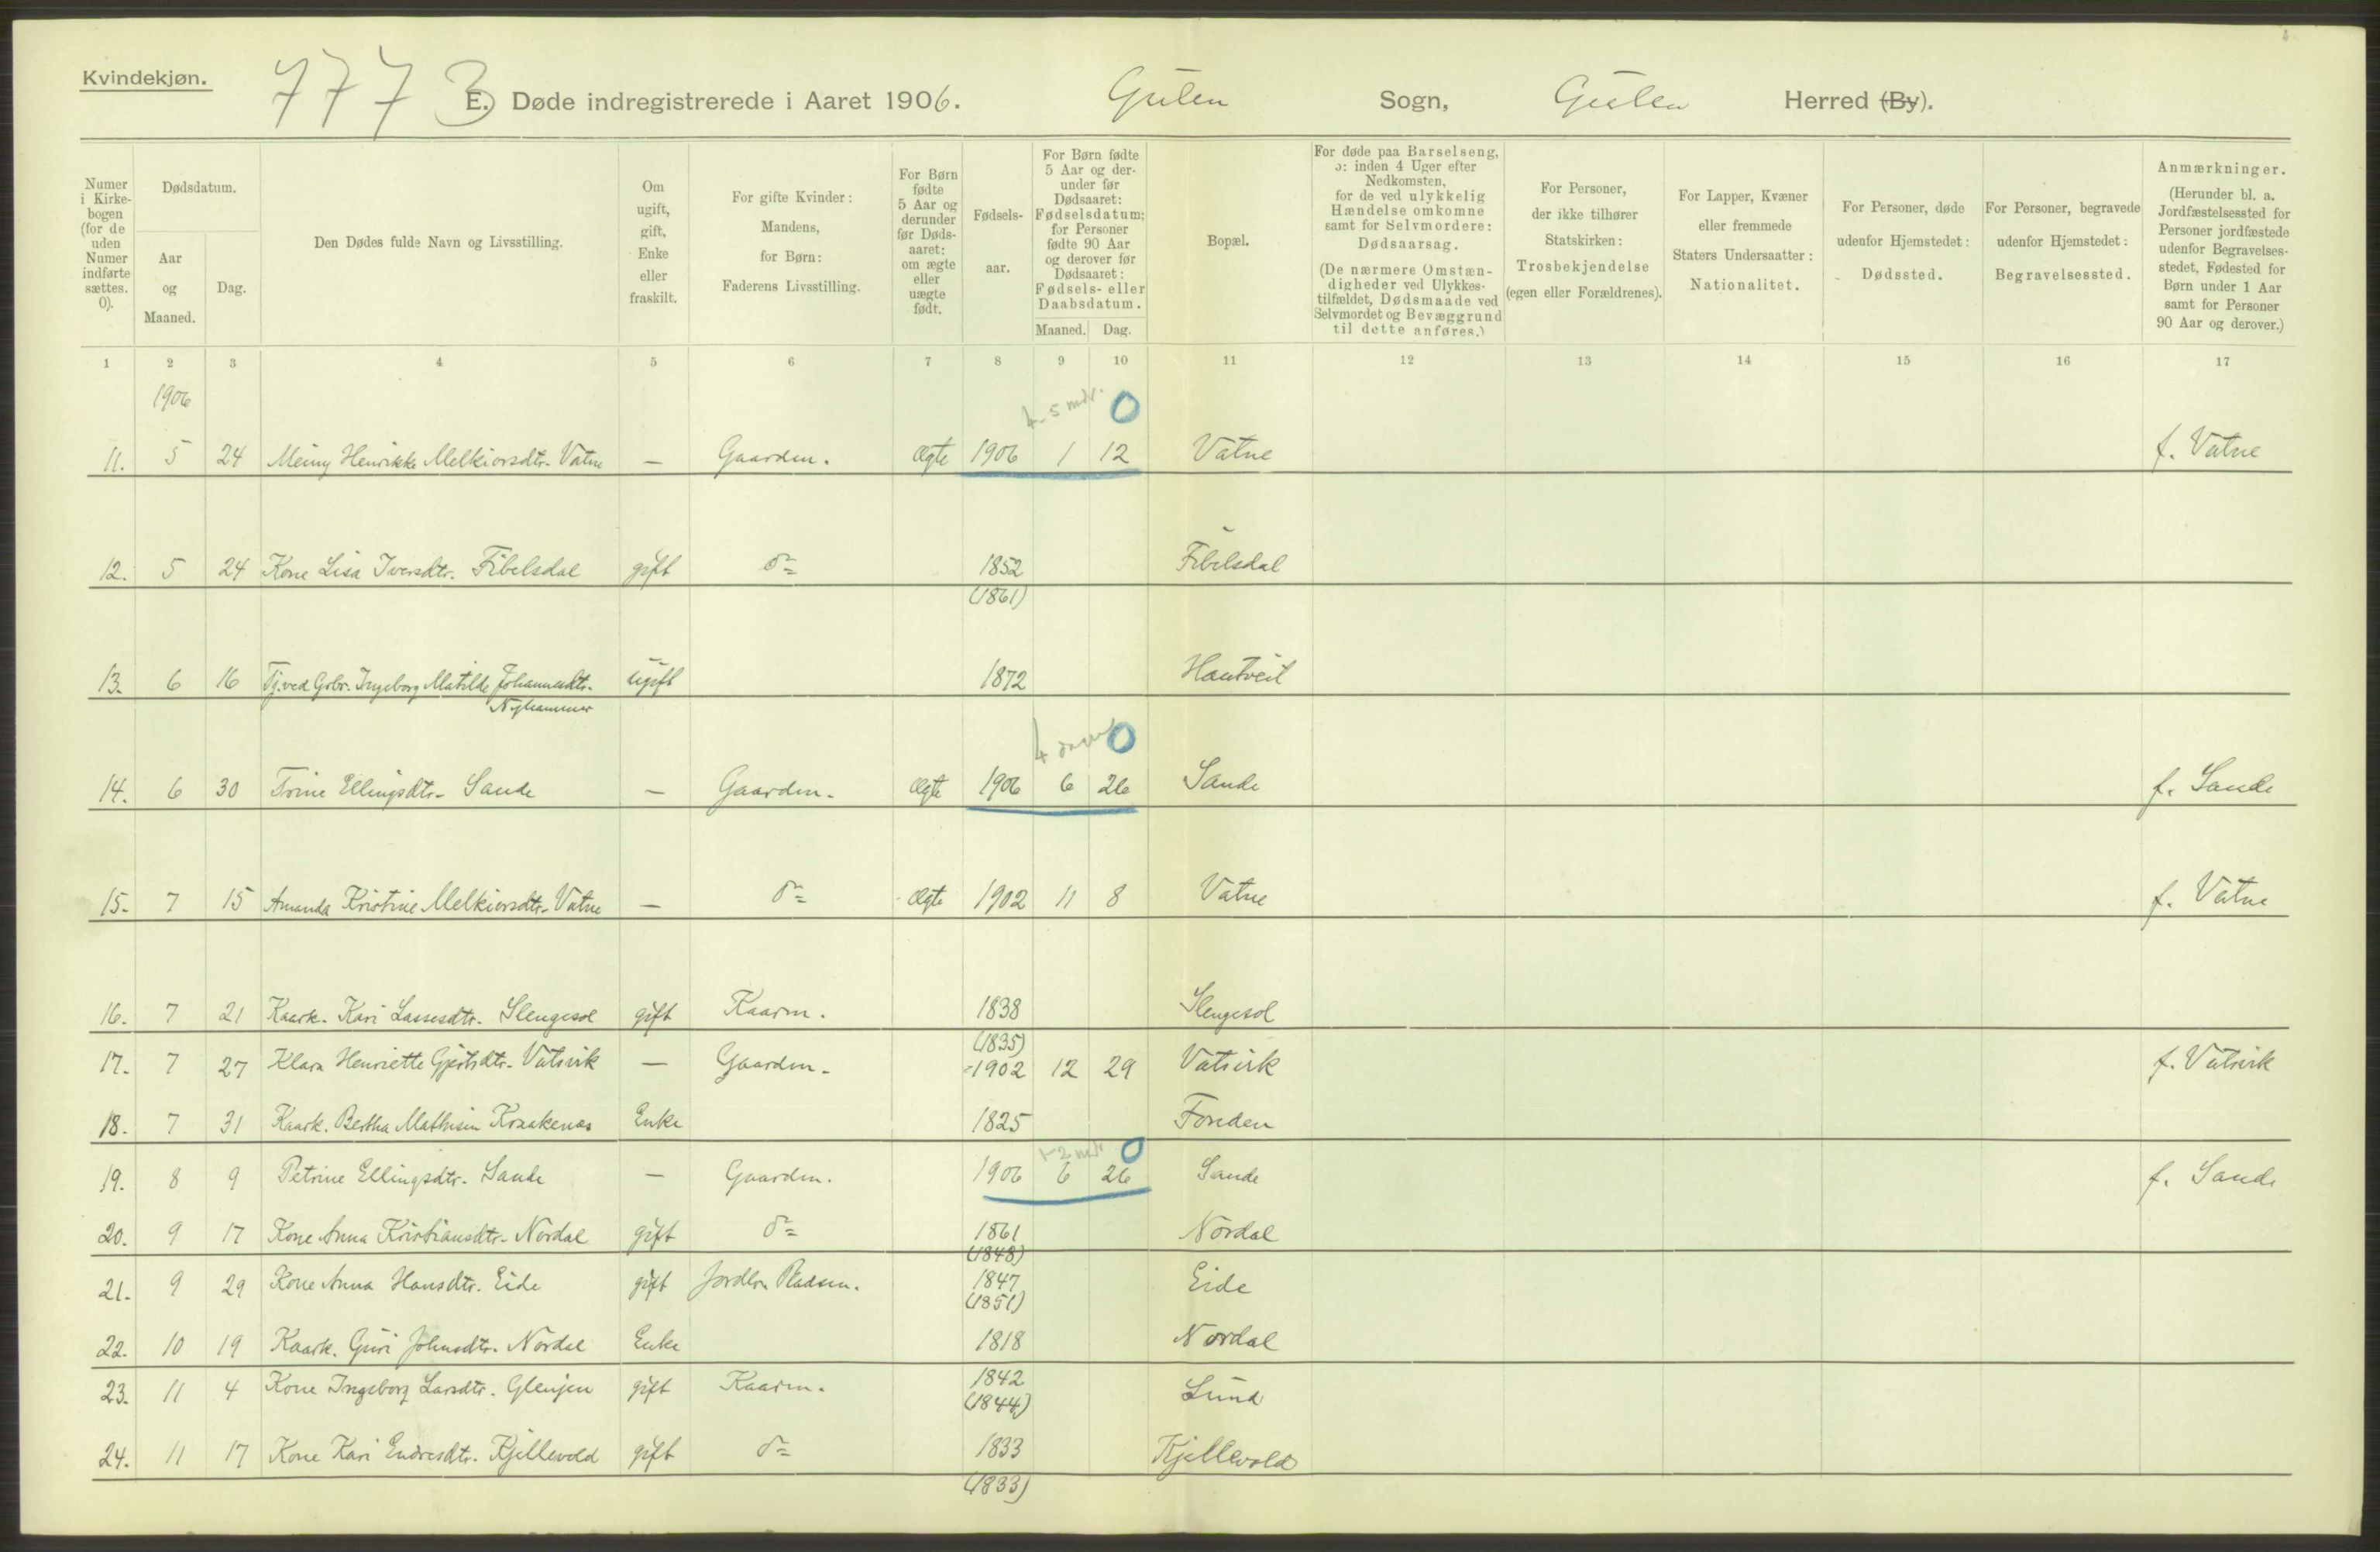 Kvindekjøn.
7773
E. Døde indregistrerede i Aaret 1906. Gulen Sogn, Gulen Herred (By).
Numer i Kirke- bogen (for de uden Numer indførte sættes. 0).
Dødsdatum.
Aar og Maaned.
Dag.
Den Dødes fulde Navn og Livsstilling.
Om ugift, gift, Enke eller fraskilt.
For gifte Kvinder: Mandens, for Børn: Faderens Livsstilling.
For Børn fødte 5 Aar og derunder før Døds- aaret: om ægte eller uægte født.
Fødsels- aar.
For Børn fødte 5 Aar og der- under før Dødsaaret: Fødselsdatum; for Personer fødte 90 Aar og derover før Dødsaaret: Fødsels- eller Daabsdatum.
Maaned. Dag.
Bopæl.
For døde paa Barselseng, ɔ: inden 4 Uger efter Nedkomsten, for de ved ulykkelig Hændelse omkomne samt for Selvmordere: Dødsaarsag. (De nærmere Omstæn- digheder ved Ulykkes- tilfældet, Dødsmaade ved Selvmordet og Bevæggrund til dette anføres.)
For Personer, der ikke tilhører Statskirken: Trosbekjendelse (egen eller Forældrenes).
For Lapper, Kvæner eller fremmede Staters Undersaatter: Nationalitet.
For Personer, døde udenfor Hjemstedet: Dødssted.
For Personer, begravede udenfor Hjemstedet: Begravelsessted.
Anmærkninger. (Herunder bl. a. Jordfæstelsessted for Personer jordfæstede udenfor Begravelses- stedet, Fødested for Børn under 1 Aar samt for Personer 90 Aar og derover.)
1 2 3 4 5 6 7 8 9 10 11 12 13 14 15 16 17
1906
4-5 mdr. 0
11. 5 24 Meiny Henrikke Melkiorsdtr. Vatne — Gaardm. Ægte 1906 1 12 Vatne f. Vatne
12. 5 24 Kone Lisa Iversdtr. Fibelsdal gift do 1852 Fibelsdal
(1861)
13. 6 16 Tj. ved Grbr. Ingeborg Matilde Johannesdtr. ugift 1872 Hantveit
Nyhammer
4 0
14. 6 30 Trine Ellingsdtr. Sande — Gaardm. Ægte 1906 6 26 Sande f. Sande
15. 7 15 Amanda Kristine Melkiorsdtr. Vatne — do Ægte 1902 11 8 Vatne f. Vatne
16. 7 21 Kaark. Kari Lassesdtr. Slengesol gift Kaarm. 1838 Slengesol
(1835)
17. 7 27 Klara Henriette Gjertsdtr. Vatsvik — Gaardm. 1902 12 29 Vatsvik f. Vatsvik
18. 7 31 Kaark. Bertha Mathisen Kraakenæs Enke 1825 Fonden
1-2 mdr. 0
19. 8 9 Petrine Ellingsdtr. Sande — Gaardm. 1906 6 26 Sande f. Sande
20. 9 17 Kone Anna Kristiansdtr. Nordal gift do 1861 Nordal
(1848)
21. 9 29 Kone Anna Hansdtr. Eide gift Jordlr. Pladsm. 1847 Eide
(1851)
22. 10 19 Kaark. Guri Johnsdtr. Nordal Enke 1818 Nordal
23. 11 4 Kone Ingeborg Larsdtr. Glenjen gift Kaarm. 1842 Lund
(1844)
24. 11 17 Kone Kari Endresdtr. Kjellevold gift do 1833 Kjellevold
(1833)